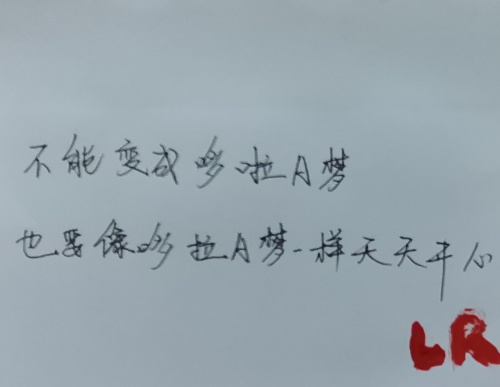 不能变成哆啦A梦
也要像哆拉A梦一样天天开心
LR